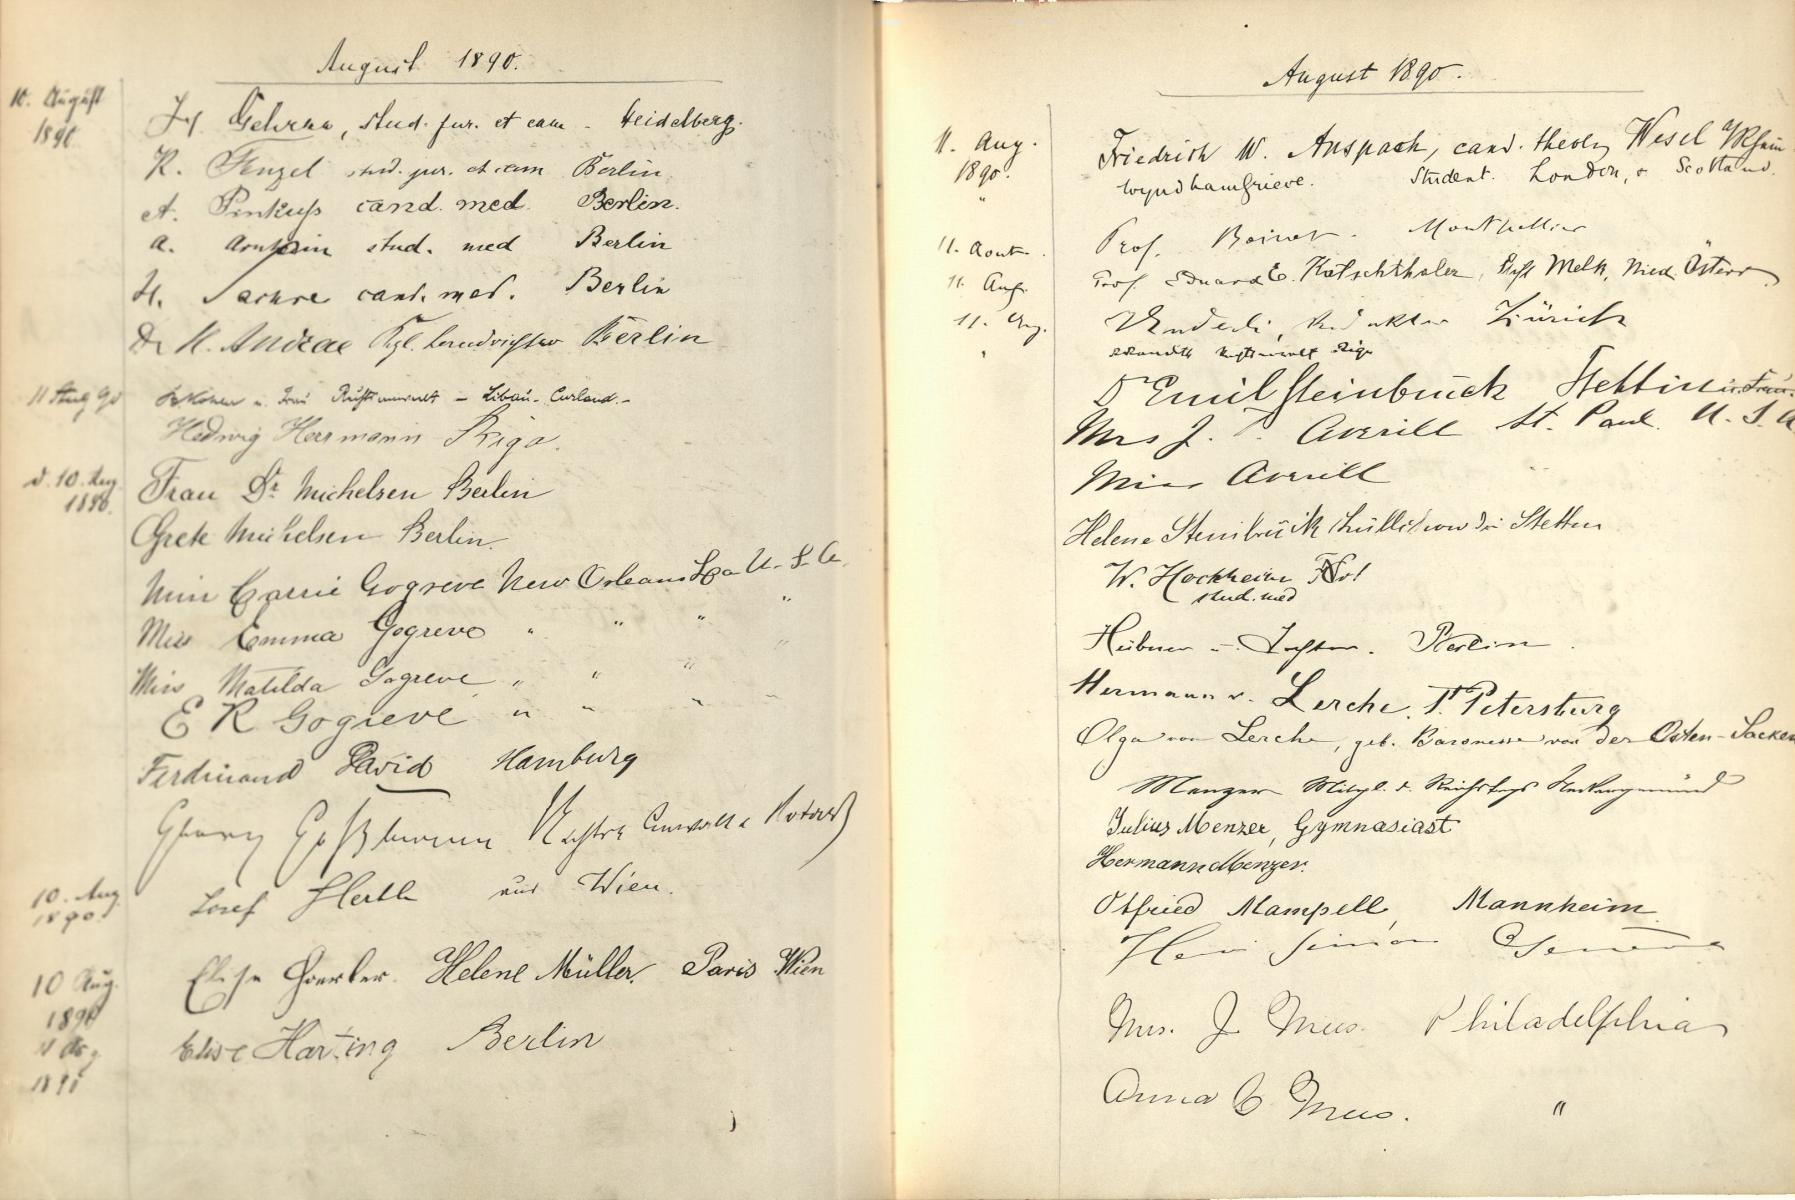 August 1890.
10. August
1890
Gehrke, stud. jur. et cam. Heidelberg.
K. Fenzel stud. jur. et cam Berlin
A. Pinkuss cand. med. Berlin.
A. stud. med Berlin
H. cand. med. Berlin
Dr K. Andreae Kgl. Landrichter Berlin
11 Aug 90
u. Frau - Libau - Curland. -
Hedwig Herrmann Riga.
d. 10. Aug.
1890.
Frau Dr. Michelsen Berlin
Grete Michelsen Berlin.
Miss Carrie Gogreve New Orleans La U. S. A.
Miss Emma Gogreve " " " "
Miss Matilda Gogreve " " " "
E R Gogreve " " " "
Ferdinand David Hamburg
Georg
10. Aug.
1890.
Josef Hertl aus Wien.
10 Aug.
1890
Elise Helene Müller. Paris Wien
11 Aug
1890
Elise Harting Berlin
August 1890.
11. Aug.
1890.
Friedrich W. Anspach, cand. theol. Wesel a/Rhein
" Wyndham Grieve. Student. London, & Scotland.
11. Aout. Prof. Boinet. Montpellier
11. Aug. Prof. Eduard E. Katschthaler, Stift Melk, Nied. Österr.
11. Aug. Redakteur Zürich
" Riga
Dr Emil Steinbrück Stettin u. Frau.
Mrs J. T. Averill St. Paul. U. S. A
Miss Averill
Helene Steinbrück Stettin
W. Hochheim
stud. med
Hübner u. Tochter. Berlin.
Hermann v. Lerche. St. Petersburg
Olga von Lerche, geb. Baronesse von der Osten-Sacken
Menzer Mitgl. d. Reichstags Neckargemünd
Julius Menzer, Gymnasiast
Hermann Menzer.
Otfried Mampell, Mannheim
Henri Simon Genève
Mrs. J. Mees. Philadelphia
Anna C Mees. "